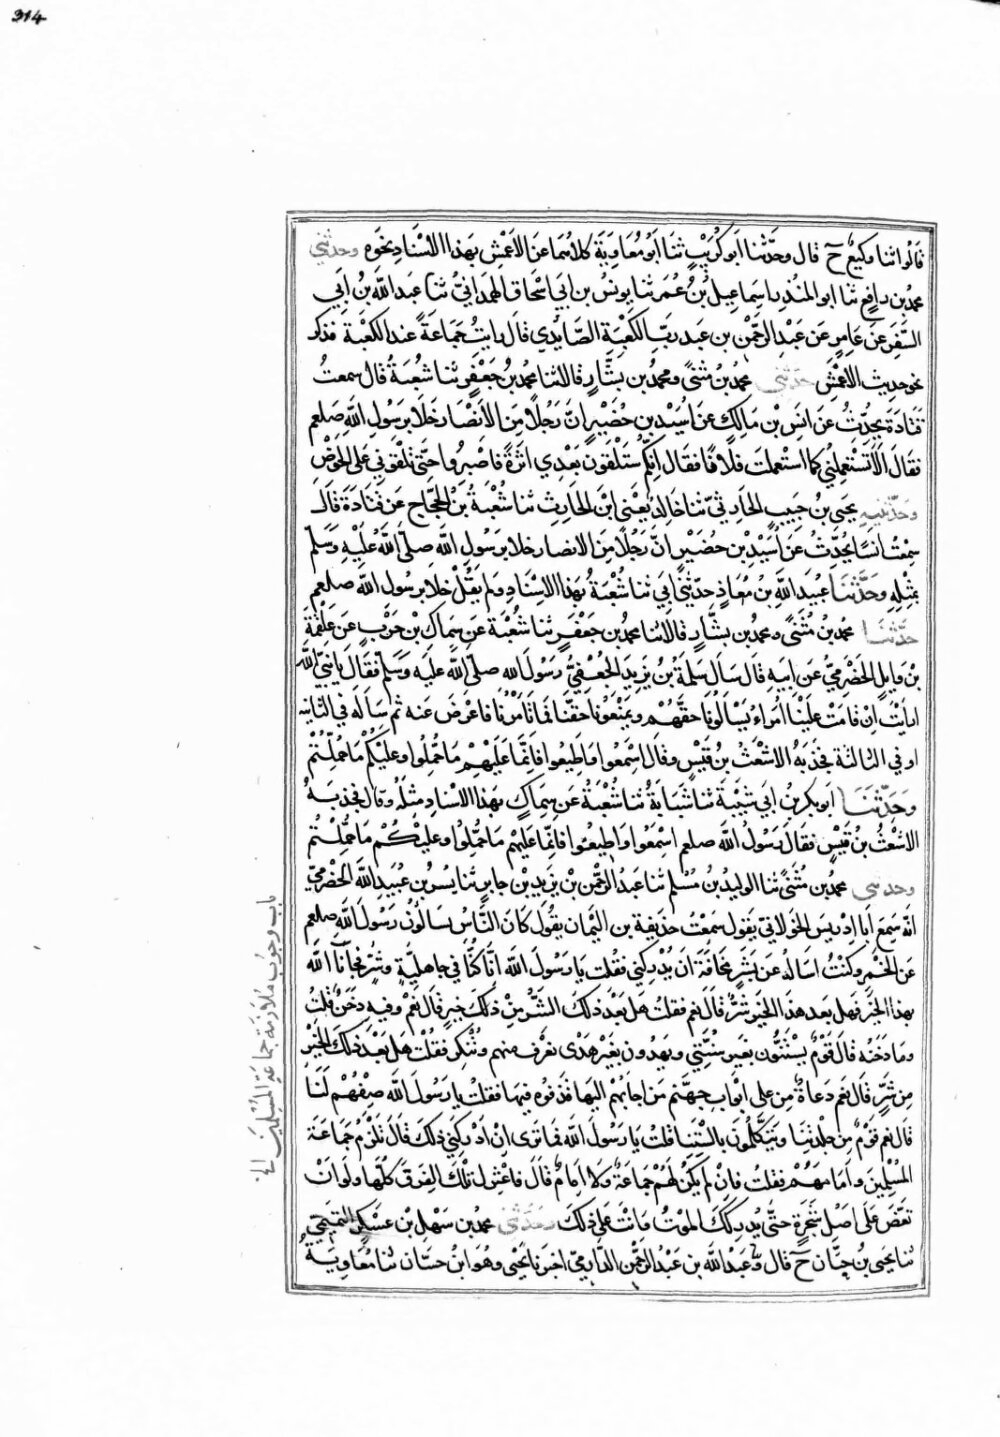 314
قالوا ثنا وكيع ح قال وحدثنا ابو كريب ثنا ابو معاوية كلاهما عن الاعمش بهذا الاسناد نحوه وحدثني
محمد بن رافع ثنا ابو المنذر اسماعيل بن عمر ثنا يونس بن ابي اسحاق الهمداني ثنا عبد الله بن ابي
السفر عن عامر عن عبد الرحمن بن عبد رب الكعبة الصايدي قال رايت جماعة عند الكعبة فذكر
نحو حديث الاعمش حدثني محمد بن مثنى ومحمد بن بشار قالا ثنا محمد بن جعفر ثنا شعبة قال سمعت
قتادة يحدث عن انس بن مالك عن اسيد بن حضير ان رجلا من الانصار خلا برسول الله صلعم
فقال الا تستعملني كما استعملت فلانا فقال انكم ستلقون بعدي اثرة فاصبروا حتى تلقوني على الحوض
وحدثنيه يحيى بن حبيب الحارثي ثنا خالد يعني ابن الحارث ثنا شعبة بن الحجاج عن قتادة قال
سمعت انسا يحدث عن اسيد بن حضير ان رجلا من الانصار خلا برسول الله صلى الله عليه وسلم
بمثله وحدثنا عبيد الله بن معاذ حدثني ابي ثنا شعبة بهذا الاسناد ولم يقل خلا برسول الله صلعم
حدثنا محمد بن مثنى ومحمد بن بشار قالا ثنا محمد بن جعفر ثنا شعبة عن سماك بن حرب عن علقمة
بن وايل الحضرمي عن ابيه قال سال سلمة بن يزيد الجعفي رسول الله صلى الله عليه وسلم فقال يا نبي الله
ارايت ان قامت علينا امراء يسالونا حقهم ويمنعونا حقنا فما تامرنا فاعرض عنه ثم ساله في الثانية
او في الثالثة فجذبه الاشعث بن قيس وقال اسمعوا واطيعوا فانما عليهم ما حملوا وعليكم ما حملتم
وحدثنا ابو بكر بن ابي شيبة ثنا شبابة ثنا شعبة عن سماك بهذا الاسناد مثله وقال فجذبه
الاشعث بن قيس فقال رسول الله صلعم اسمعوا واطيعوا فانما عليهم ما حملوا وعليكم ما حملتم
وحدثني محمد بن مثنى ثنا الوليد بن مسلم ثنا عبد الرحمن بن يزيد بن جابر ثنا بسر بن عبيد الله الحضرمي
انه سمع ابا ادريس الخولاني يقول سمعت حذيفة بن اليمان يقول كان الناس يسالون رسول الله صلعم
عن الخير وكنت اساله عن الشر مخافة ان يدركني فقلت يا رسول الله انا كنا في جاهلية وشر فجانا الله
بهذا الخير فهل بعد هذا الخير شر قال نعم فقلت هل بعد ذلك الشر من ذلك خير قال نعم وفيه دخن قلت
وما دخنه قال قوم يستنون بغير سنتي ويهدون بغير هدي تعرف منهم وتنكر فقلت هل بعد ذلك الخير
من شر قال نعم دعاة من على ابواب جهنم من اجابهم اليها قذفوه فيها فقلت يا رسول الله صفهم لنا
قال نعم قوم من جلدتنا ويتكلمون بالسنتنا قلت يا رسول الله فما ترى ان ادركني ذلك قال تلزم جماعة
المسلمين وامامهم فقلت فان لم يكن لهم جماعة ولا امام قال فاعتزل تلك الفرق كلها ولو ان
تعض على اصل شجرة حتى يدركك الموت وانت على ذلك وحدثني محمد بن سهل بن عسكر التميمي
ثنا يحيى بن حسان ح قال وعبد الله بن عبد الرحمن الدارمي اخبرنا يحيى وهو ابن حسان ثنا معاوية
باب وجوب ملازمة جماعة المسلمين الخ